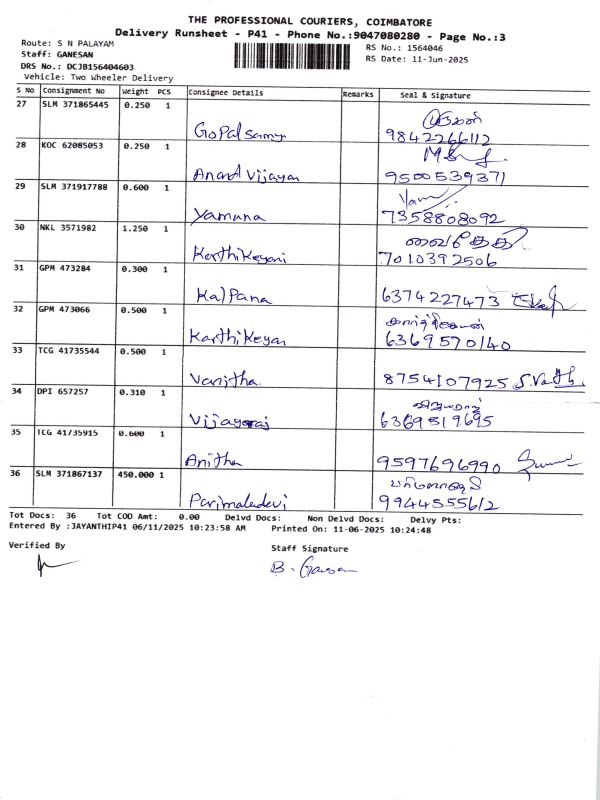 THE PROFESSIONAL COURIERS, COIMBATORE
Delivery Runsheet - P41 - Phone No.:9047080280 - Page No.:3
Route: S N PALAYAM
RS No.: 1564046
Staff: GANESAN
RS Date: 11-Jun-2025
DRS No.: DCJB156404603
Vehicle: Two Wheeler Delivery
S No Consignment No Weight PCS Consignee Details Remarks Seal & Signature
27 SLM 371865445 0.250 1
Gopalsamy 9842266112
28 KOC 62085053 0.250 1
Anand Vijayan 9500539371
29 SLM 371917788 0.600 1
Yamuna 7358808092
30 NKL 3571982 1.250 1
Karthikeyani 7010392506
31 GPM 473284 0.300 1
Kalpana 6374227473
32 GPM 473066 0.500 1 கார்த்திகேயன்
Karthikeyan 6369570140
33 TCG 41735544 0.500 1
Vanitha 8754107925
34 DPI 657257 0.310 1 விஜயராஜ்
Vijayaraj 6369519695
35 TCG 41735915 0.600 1
Anitha 9597696990
36 SLM 371867137 450.000 1
Parimaladevi 9944555612
Tot Docs: 36 Tot COD Amt: 0.00 Delvd Docs: Non Delvd Docs: Delvy Pts:
Entered By :JAYANTHIP41 06/11/2025 10:23:58 AM Printed On: 11-06-2025 10:24:48
Verified By
Staff Signature
B. Ganesan